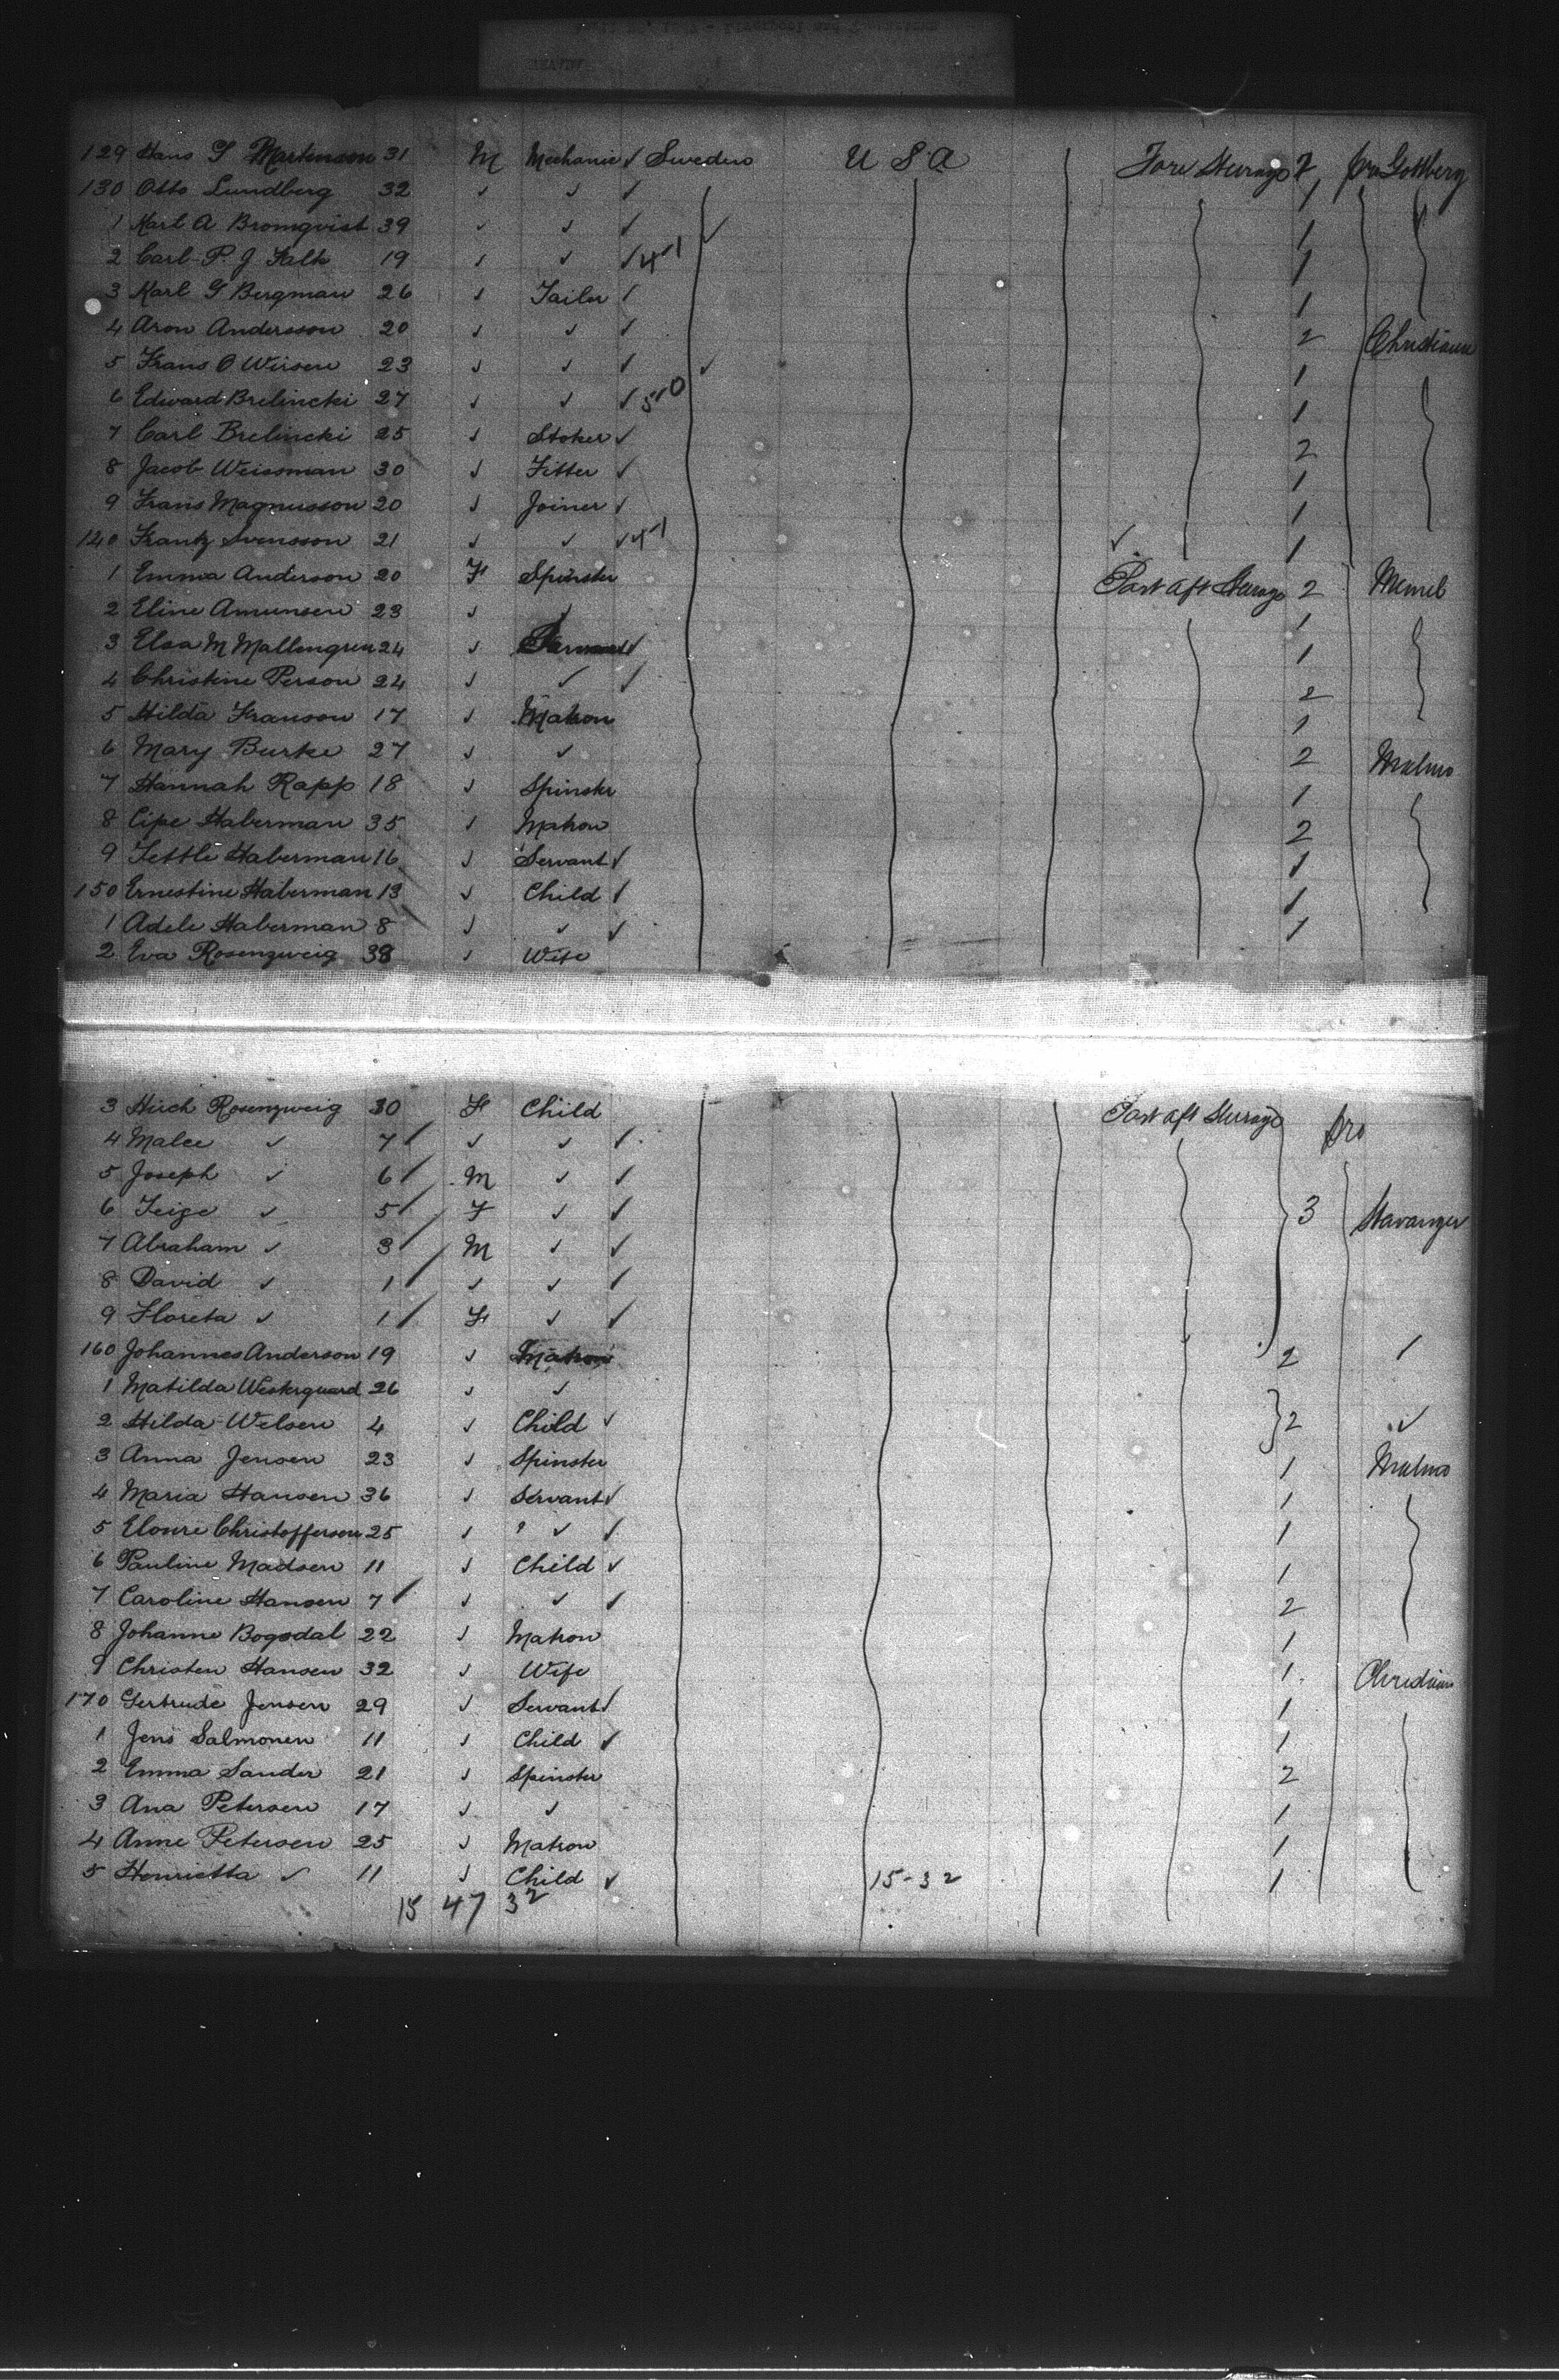 129 Hans G Martenson 31 M Mechanic ✓ Sweden U S A Fore Steerage 2 pro Gottberg
130 Otto Lundberg 32 ✓ ✓ ✓ 1
1 Karl A Bromqvist 39 ✓ ✓ ✓ ✓ 1
2 Carl P. J Falk 19 ✓ ✓ ✓ 1
3 Karl G Bergman 26 ✓ Tailor ✓ 1
4 Aron Andersson 20 ✓ ✓ ✓ 2 Christiana
5 Frans O Weisen 23 ✓ ✓ ✓ ✓ 1
6 Edward Brelincki 27 ✓ ✓ ✓ 1
7 Carl Brelincki 25 ✓ Stoker ✓ 2
8 Jacob Weissman 30 ✓ Fitter ✓ 1
9 Frans Magnusson 20 ✓ Joiner ✓ 1
140 Frantz Svensson 21 ✓ ✓ ✓ ✓ 1
1 Emma Anderson 20 F Spinster Part aft Steerage 2 Memel
2 Eline Amunsen 23 ✓ ✓ 1
3 Elsa M Mallengren 24 ✓ Servant ✓ 1
4 Christine Person 24 ✓ ✓ ✓ 2
5 Hilda Franson 17 ✓ Matron 1
6 Mary Burke 27 ✓ ✓ 2 Malmo
7 Hannah Rapp 18 ✓ Spinster 1
8 Cipe Haberman 35 ✓ Matron 2
9 Jettle Haberman 16 ✓ Servant ✓ 1
150 Ernestine Haberman 13 ✓ Child ✓ 1
1 Adele Haberman 8 ✓ ✓ ✓ 1
2 Eva Rosenzweig 38 ✓ Wife
3 Hirch Rosenzweig 30 F Child Part aft Steerage pro
4 Malee ✓ 7 ✓ ✓ ✓
5 Joseph ✓ 6 M ✓ ✓
6 Feige ✓ 5 F ✓ ✓ 3 Stavanger
7 Abraham ✓ 3 M ✓ ✓
8 David ✓ 1 ✓ ✓ ✓
9 Floreta ✓ 1 F ✓ ✓
160 Johannes Anderson 19 ✓ Matron 2 ✓
1 Matilda Westerquard 26 ✓ ✓
2 Hilda Welsen 4 ✓ Child ✓ 2 ✓
3 Anna Jensen 23 ✓ Spinster 1 Malmo
4 Maria Hansen 36 ✓ Servant ✓ 1
5 Elonre Christoffersen 25 ✓ ✓ ✓ 1
6 Pauline Madsen 11 ✓ Child ✓ 1
7 Caroline Hansen 7 ✓ ✓ ✓ 2
8 Johanne Bogsdal 22 ✓ Matron 1
9 Christen Hansen 32 ✓ Wife 1 Christiana
170 Gertrude Jensen 29 ✓ Servant ✓ 1
1 Jens Salmonen 11 ✓ Child ✓ 1
2 Emma Sander 21 ✓ Spinster 2
3 Ana Petersen 17 ✓ ✓ 1
4 Anne Petersen 25 ✓ Matron 1
5 Henrietta ✓ 11 ✓ Child ✓ 15-32 1
15 47 32